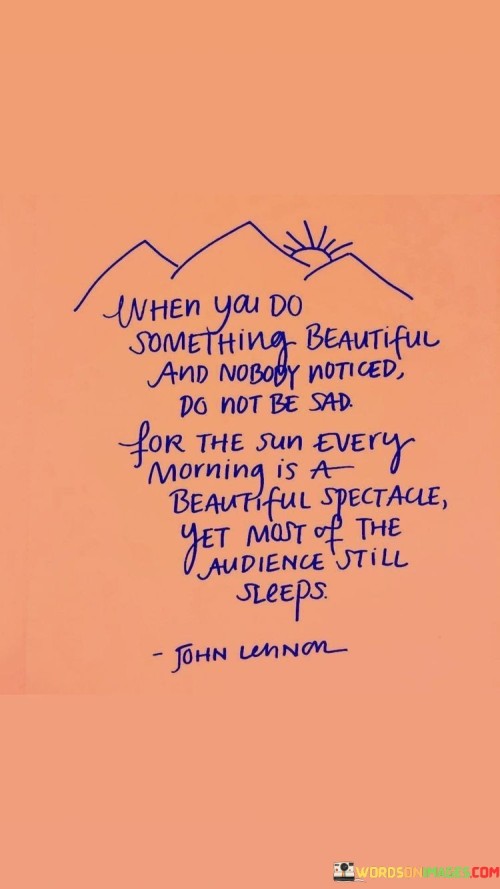 WHEN you DO
SOMETHING BEAUTIFUL
AND NOBODY NOTICED,
DO NOT BE SAD.
for THE sun EVERy
Morning is A
BEAUTIFUL SPECTACLE,
yET MOST of THE
AUDIENCE STILL
SLEEPS.
- JOHN LENNON
WORDSONIMAGES.COM